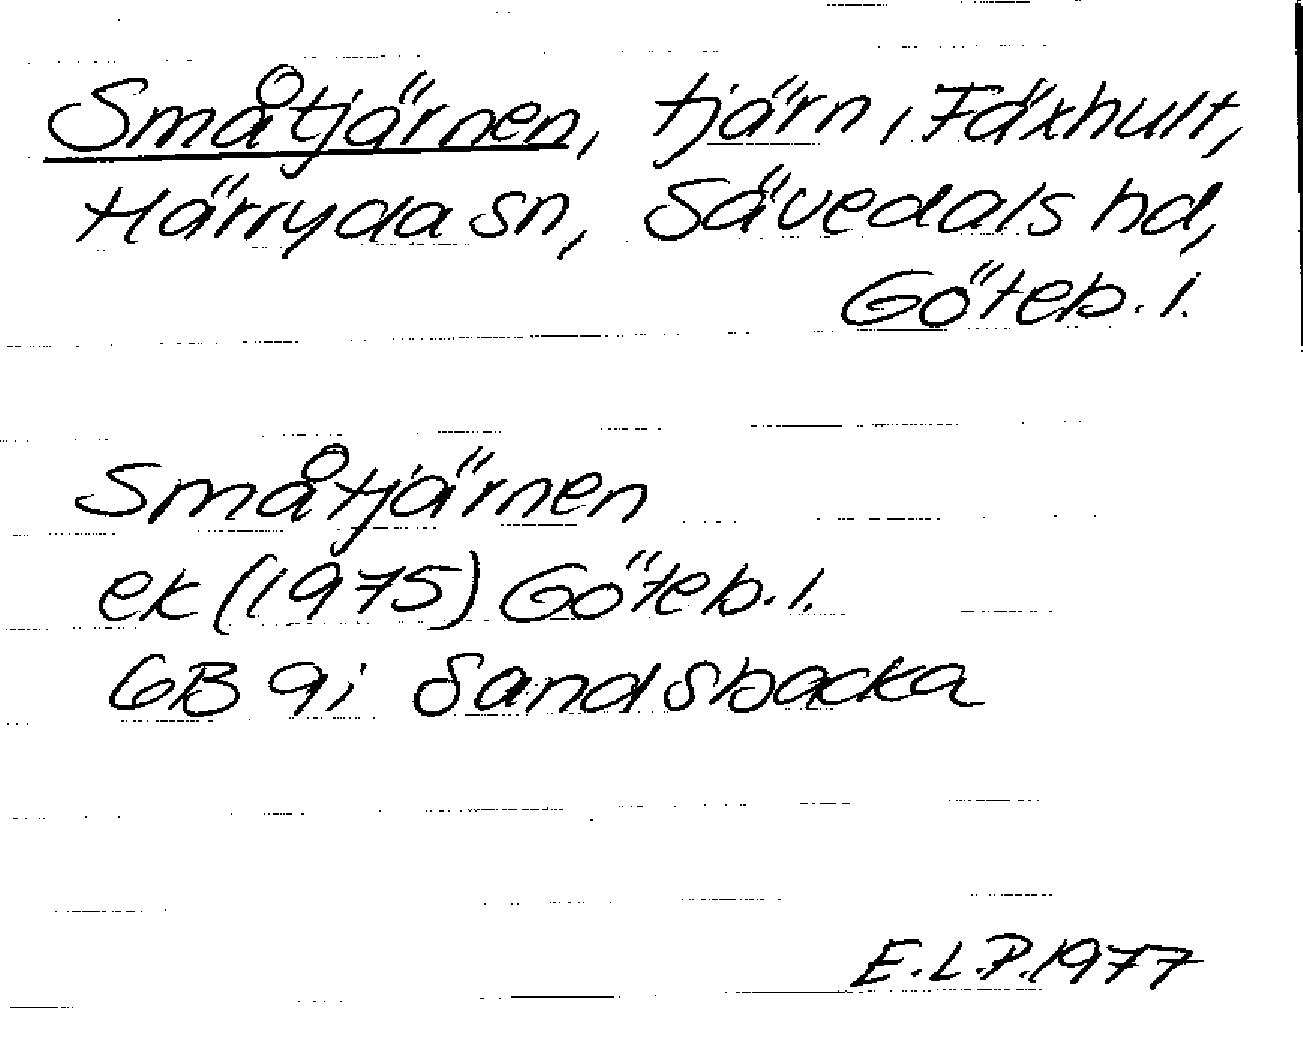 Småtjärnen, tjärn i Fäxhult,
Härryda sn, Sävedals hd,
Göteb. l.
Småtjärnen
ek (1975) Göteb. l.
GB 9i Sandsbacka
E.L.P. 1977